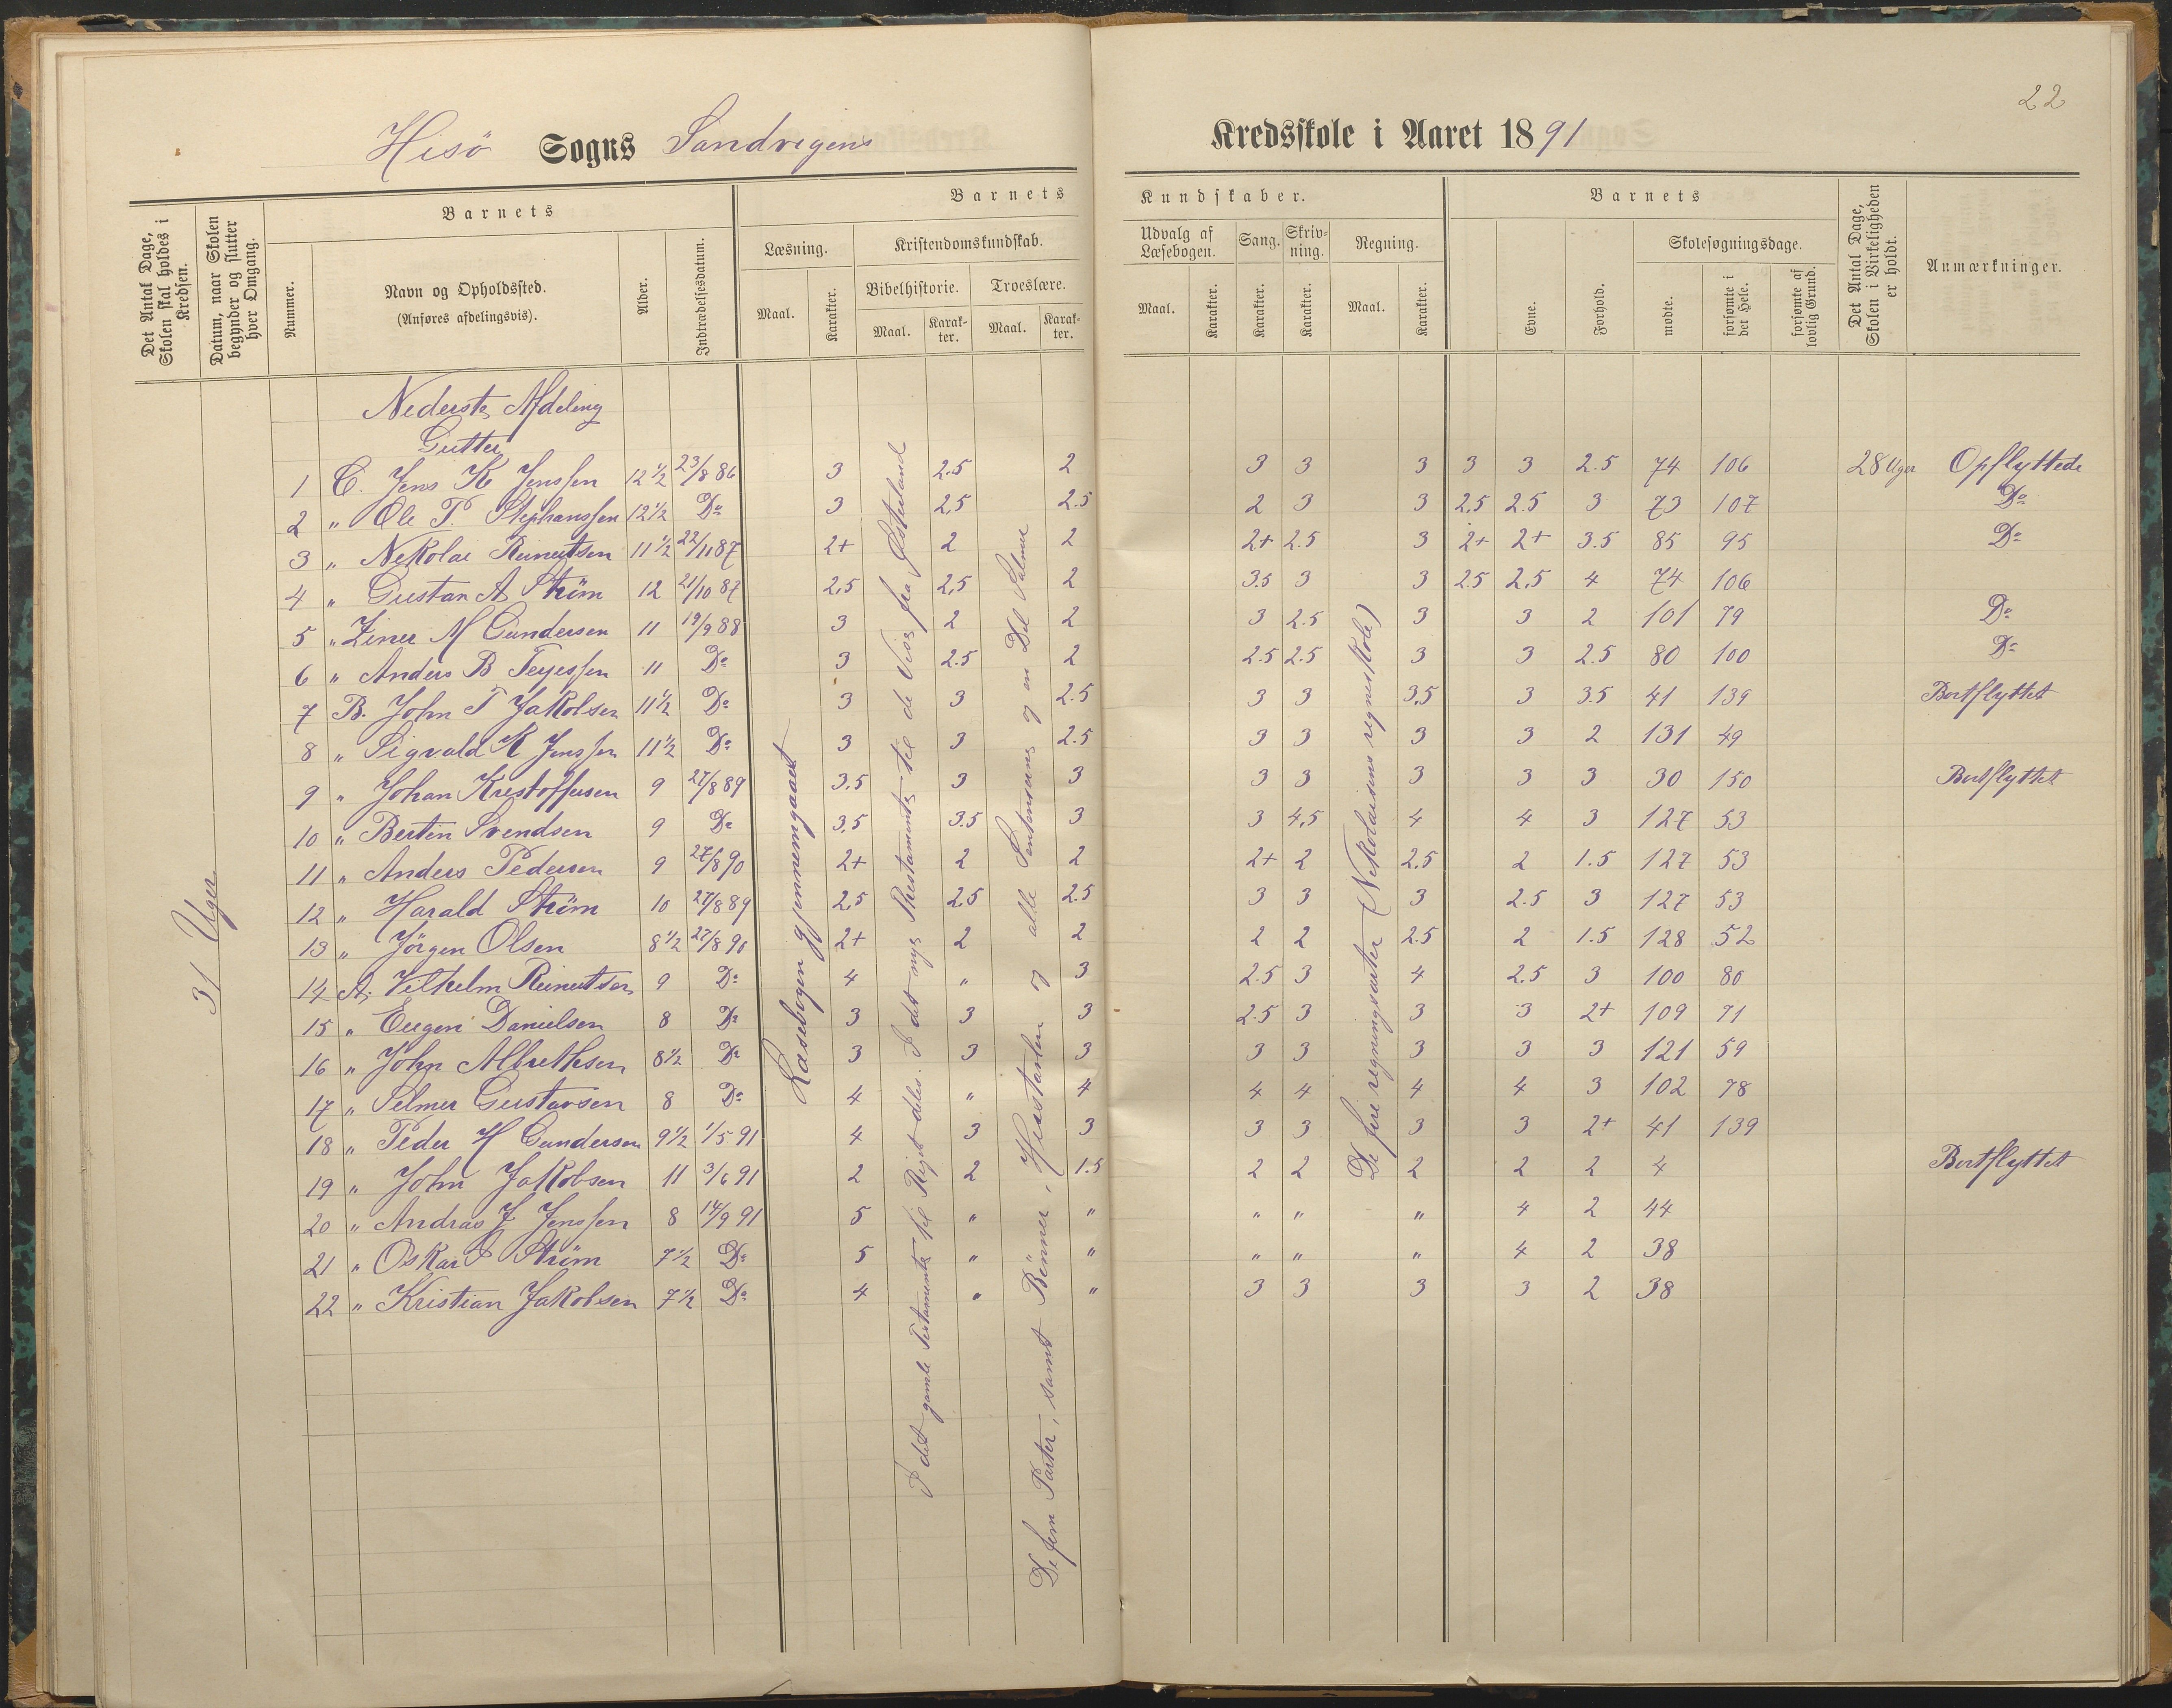 22
Hisö Sogns Sandvigens Kredsskole i Aaret 1891
Det Antal Dage, Skolen skal holdes i Kredsen.
Datum, naar Skolen begynder og slutter hver Omgang.
Barnets
Nummer.
Navn og Opholdssted.
(Anføres afdelingsvis).
Alder.
Indtrædelsesdatum.
Barnets Kundskaber.
Læsning.
Maal.
Karakter.
Kristendomskundskab.
Bibelhistorie.
Maal.
Karakter.
Troeslære.
Maal.
Karakter.
Udvalg af Læsebogen.
Maal.
Karakter.
Sang.
Karakter.
Skrivning.
Karakter.
Regning.
Maal.
Karakter.
Barnets
Evne.
Forhold.
Skolesøgningsdage.
mødte.
forsømte i det Hele.
forsømte af lovlig Grund.
Det Antal Dage, Skolen i Virkeligheden er holdt.
Anmærkninger.
31 Uger
Nederste Afdeling
Gutter
1 C. Jens K Jenssen 12 1/2 23/8 86 3 2.5 2 3 3 3 3 3 2.5 74 106 28 Uger Opflyttede
2 " Ole T. Stephanssen 12 1/2 Do 3 2,5 2.5 2 3 3 2,5 2.5 3 73 107 Do
3 " Nekolai Reinertsen 11 1/2 22/11 87 2+ 2 2 2+ 2.5 3 2+ 2+ 3.5 85 95 Do
4 " Gustav A Strøm 12 21/10 87 2,5 2,5 2 3.5 3 3 2.5 2,5 4 74 106
5 " Einer M Gundersen 11 19/9 88 3 2 2 3 2.5 3 3 2 101 79 Do
6 " Anders B Terjessen 11 Do 3 2.5 2 2.5 2.5 3 3 2.5 80 100 Do
7 B. John T Jakobsen 11 1/2 Do 3 3 2.5 3 3 3,5 3 3.5 41 139 Bortflyttet
8 " Sigvald K Jenssen 11 1/2 Do 3 3 2.5 3 3 3 3 2 131 49
9 " Johan Kristoffersen 9 27/8 89 3.5 3 3 3 3 3 3 3 30 150 Bortflyttet
10 " Bertin Svendsen 9 Do 3,5 3.5 3 3 4,5 4 4 3 127 53
11 " Anders Pedersen 9 27/8 90 2+ 2 2 2+ 2 2,5 2 1.5 127 53
12 " Harald Strøm 10 27/8 89 2,5 2,5 2.5 3 3 3 2.5 3 127 53
13 " Jörgen Olsen 8 1/2 27/8 90 2+ 2 2 2 2 2.5 2 1.5 128 52
14 A. Vilhelm Reinertsen 9 Do 4 " 3 2.5 3 4 2,5 3 100 80
15 " Eugen Danielsen 8 Do 3 3 3 2.5 3 3 3 2+ 109 71
16 " John Albrethsen 8 1/2 Do 3 3 3 3 3 3 3 3 121 59
17 " Selmer Gustavsen 8 Do 4 " 4 4 4 4 4 3 102 78
18 " Peder H Gundersen 9 1/2 1/5 91 4 3 3 3 3 3 3 2+ 41 139
19 " John Jakobsen 11 3/6 91 2 2 1.5 2 2 2 2 2 4 Bortflyttet
20 " Andras J Jenssen 8 14/9 91 5 " " " " " 4 2 44
21 " Oskar S Strøm 7 1/2 Do 5 " " " " " 4 2 38
22 " Kristian Jakobsen 7 1/2 Do 4 " " 3 3 3 3 2 38
Læsebogen gjennemgaaet
I det gamle Testamente til Riget deles. I det nye Thestamente til de Vise fra Østerland
De fem Parter, samt Bønner, Hustavlen og alle Sentenserne og en Del Salmer
De fire regningsarter (Nekolaisens regneskole)